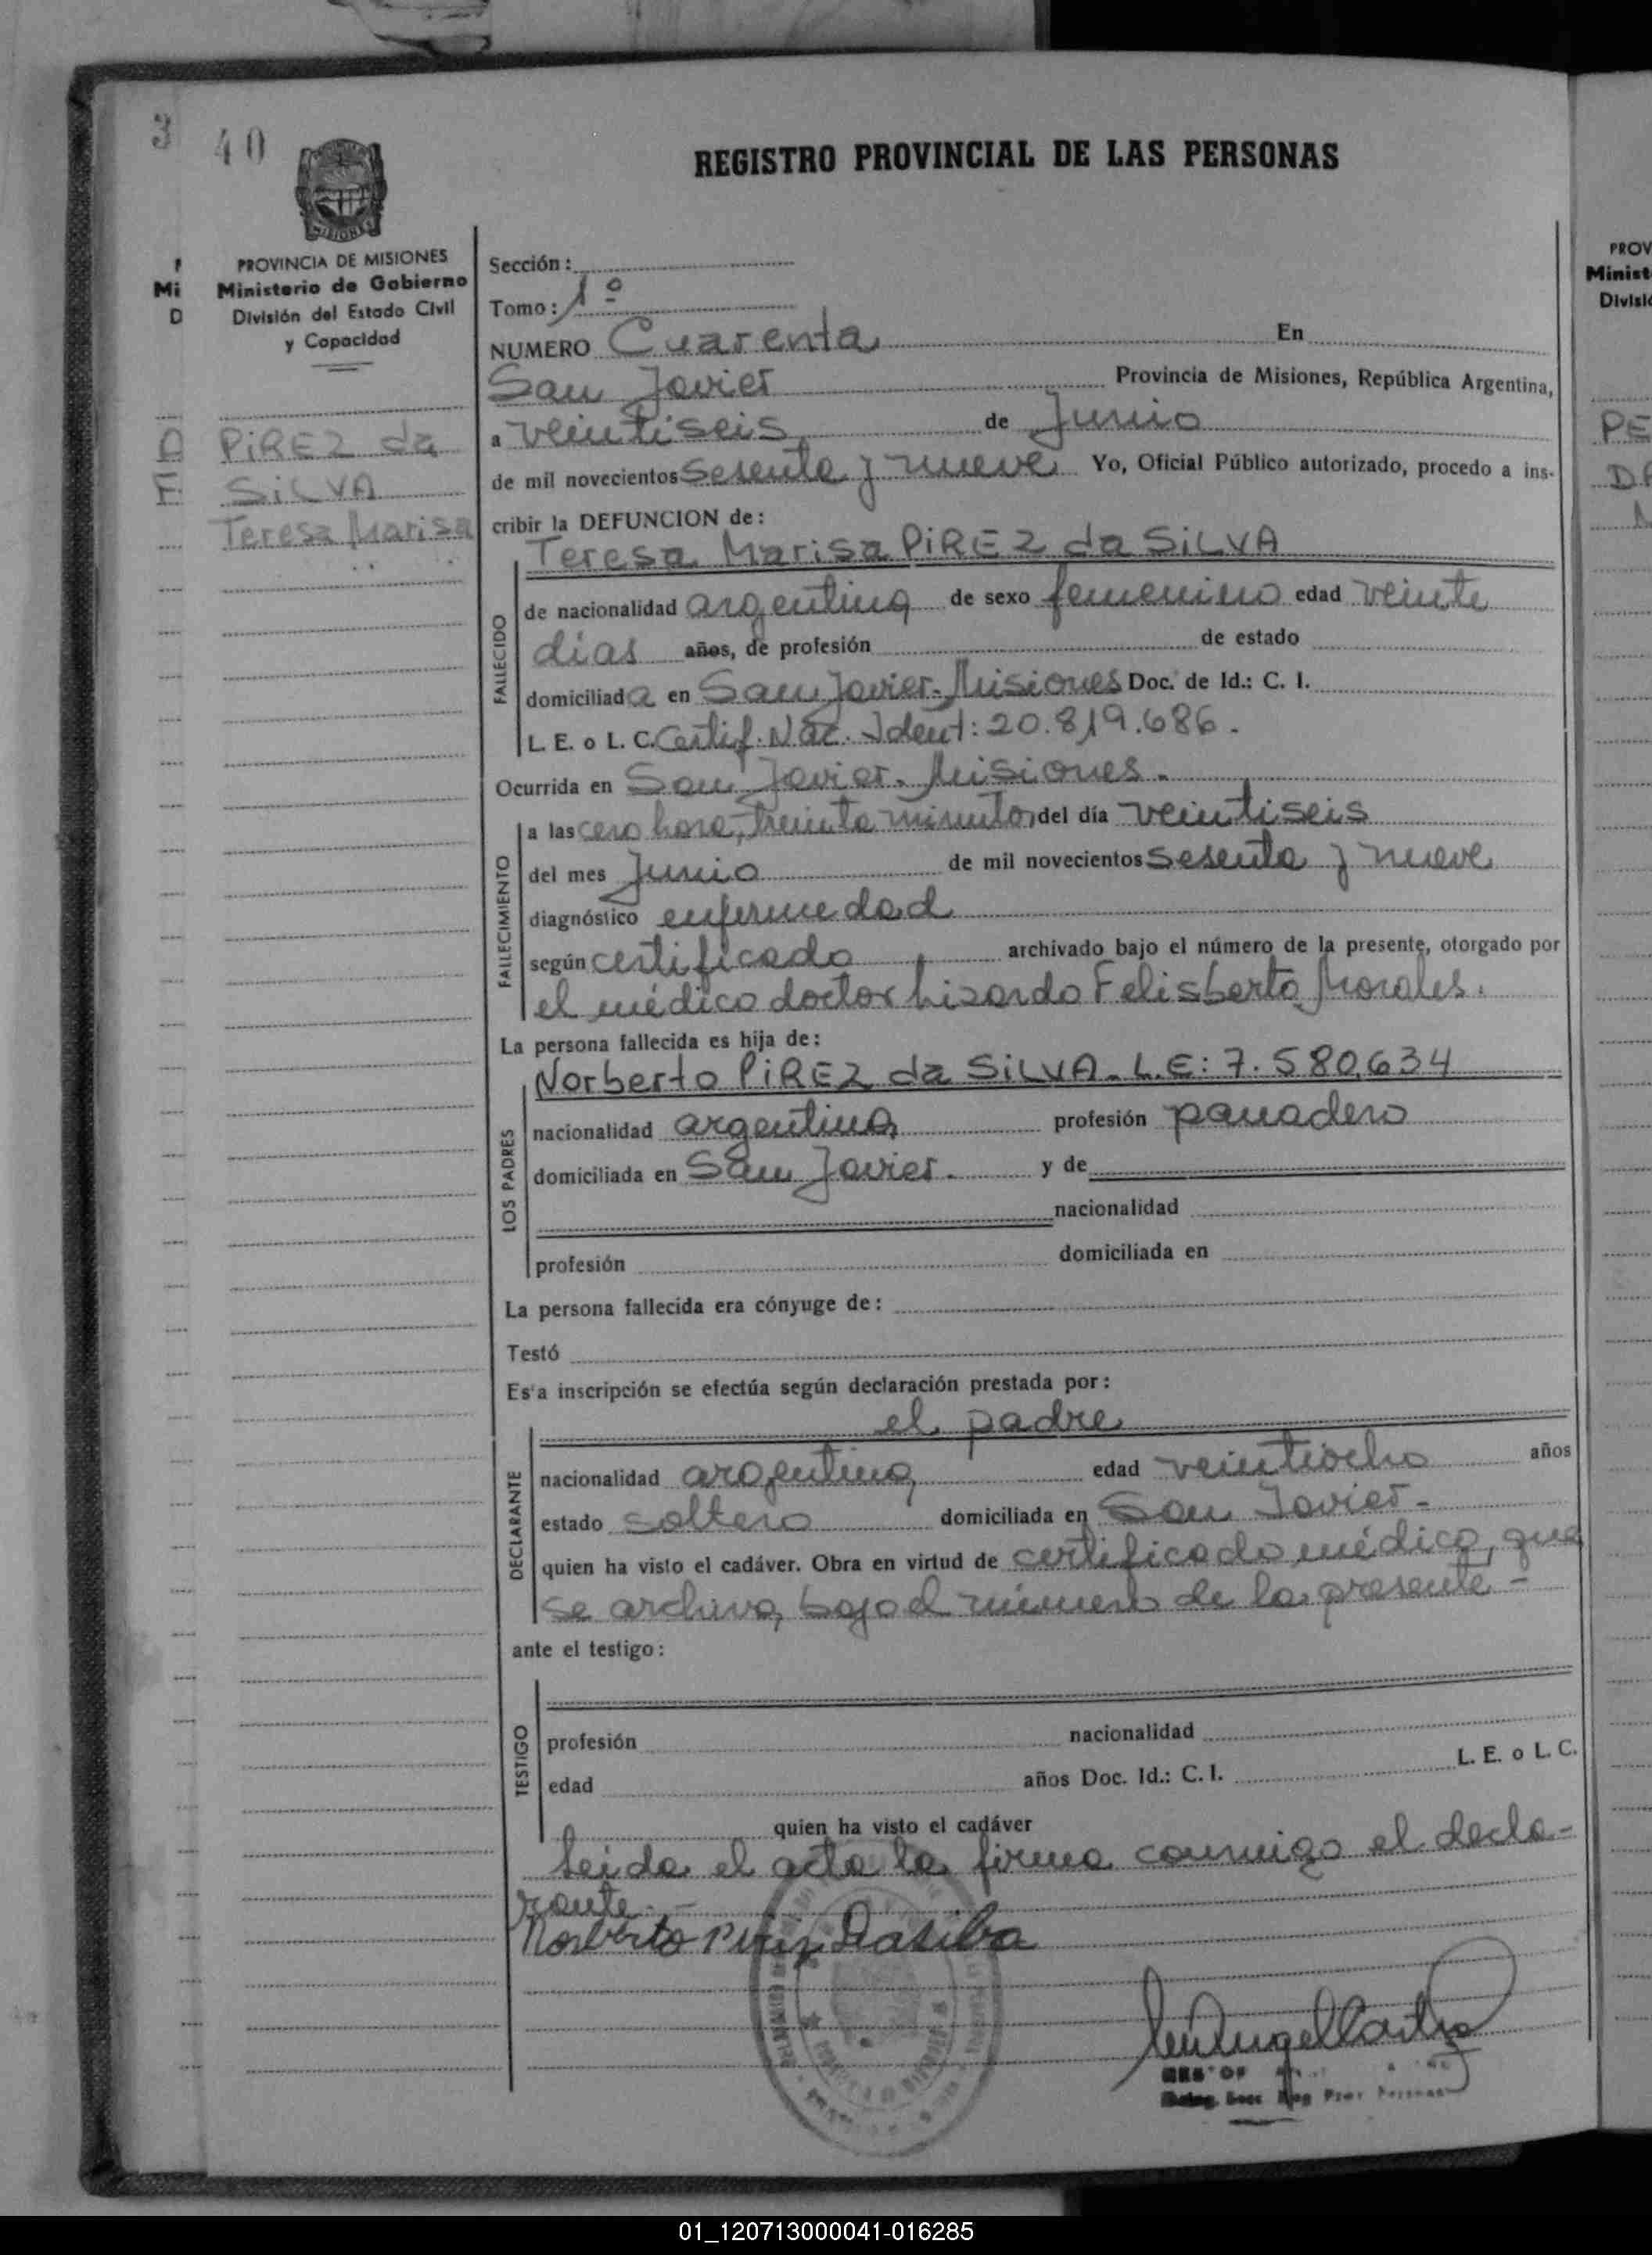 3 40
REGISTRO PROVINCIAL DE LAS PERSONAS
MISIONES
PROVINCIA DE MISIONES
Ministerio de Gobierno
División del Estado Civil
y Capacidad
PiREZ da
SiLVA
Teresa Marisa
Sección:
Tomo: 1º
NUMERO Cuarenta En
San Javier Provincia de Misiones, República Argentina,
a veintiseis de Junio
de mil novecientos sesenta y nueve Yo, Oficial Público autorizado, procedo a ins-
cribir la DEFUNCION de:
Teresa Marisa PiREZ da SiLVA
FALLECIDO
de nacionalidad argentina de sexo femenino edad veinte
días años, de profesión de estado
domiciliada en San Javier-Misiones Doc. de Id.: C. I.
L. E. o L. C. Certif. Nac. Ident: 20.819.686.
Ocurrida en San Javier. Misiones.
FALLECIMIENTO
a las cero hora, treinta minutos del día veintiseis
del mes Junio de mil novecientos sesenta y nueve
diagnóstico enfermedad
según certificado archivado bajo el número de la presente, otorgado por
el médico doctor Lizardo Felisberto Morales.
La persona fallecida es hija de:
Norberto PiREZ da SiLVA. L.E: 7.580.634
LOS PADRES
nacionalidad argentina profesión panadero
domiciliada en San Javier. y de
nacionalidad
profesión domiciliada en
La persona fallecida era cónyuge de:
Testó
Es'a inscripción se efectúa según declaración prestada por:
el padre
DECLARANTE
nacionalidad argentina edad veintiocho años
estado soltero domiciliada en San Javier-
quien ha visto el cadáver. Obra en virtud de certificado médico, que
se archiva bajo el número de la presente-
ante el testigo:
TESTIGO
profesión nacionalidad
edad años Doc. Id.: C. I. L. E. o L. C.
quien ha visto el cadáver
Leida el acta la firma conmigo el decla-
rante.-
Norberto Pirez Dasilva
PROV
Minist
PE
01_120713000041-016285